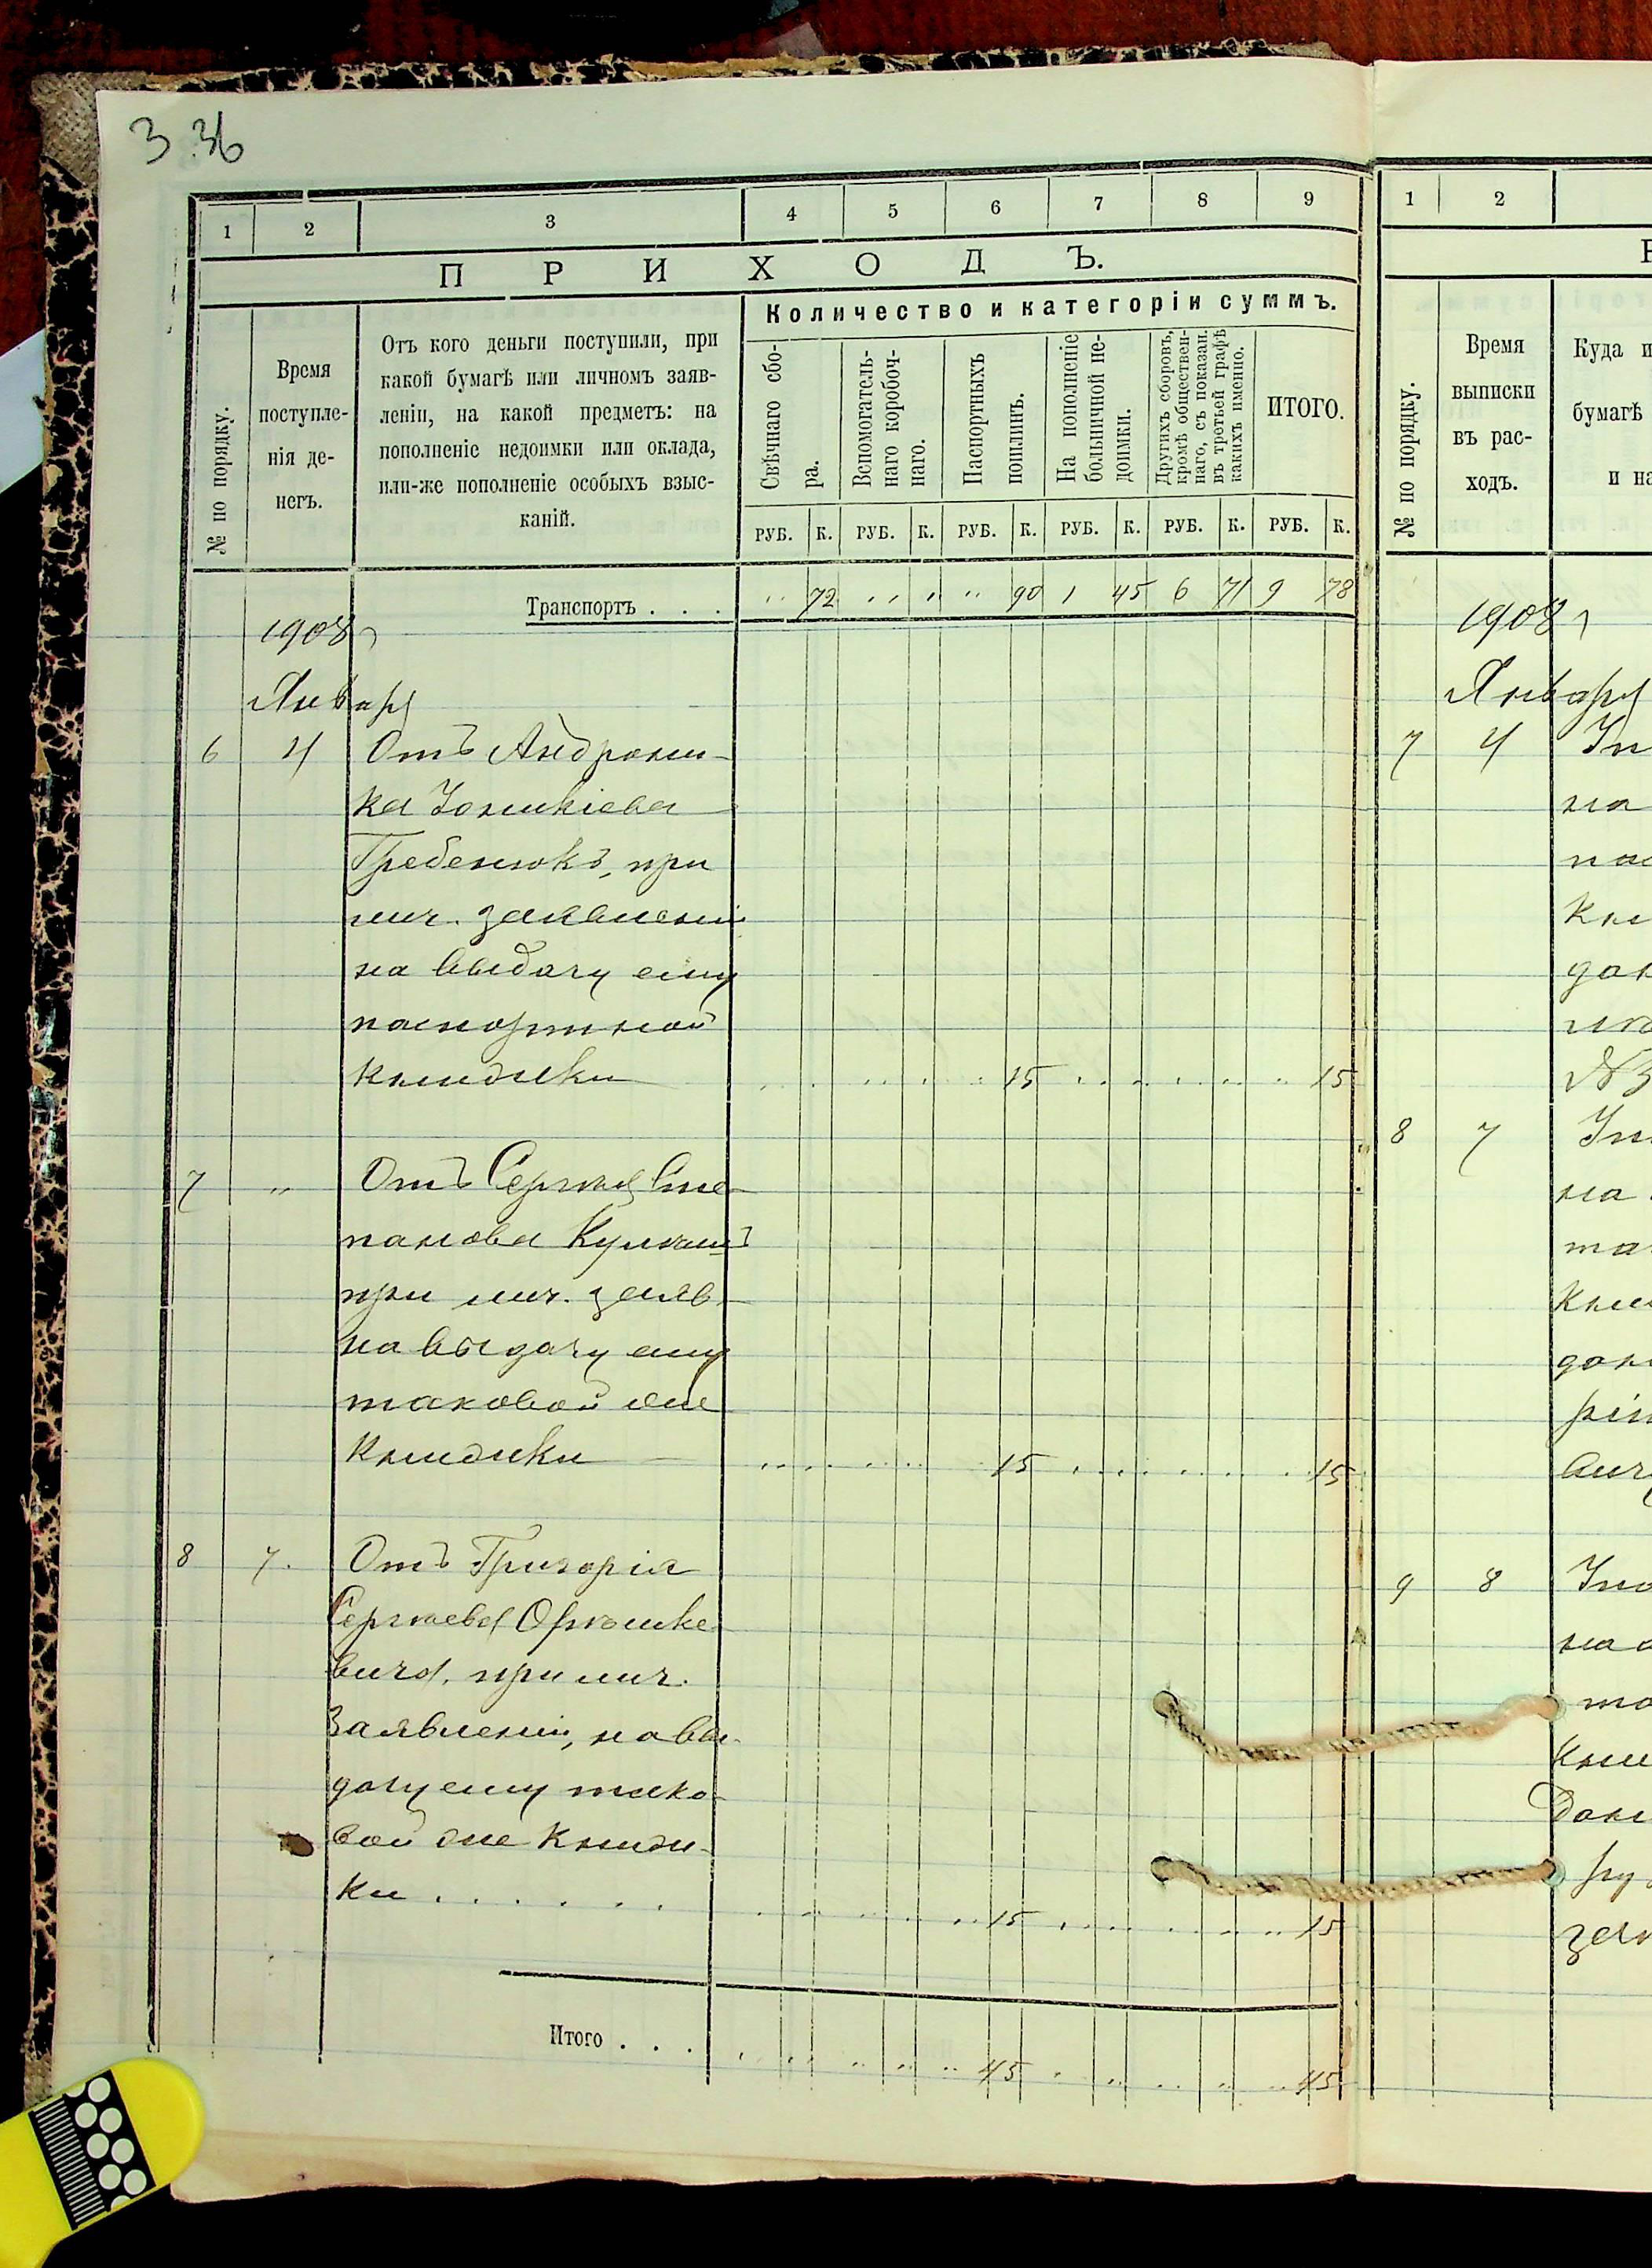 3 36
1 2 3 4 5 6 7 8 9
ПРИХОДЪ.
№ по порядку.
Время
поступле-
нія де-
негъ.
Отъ кого деньги поступили, при
какой бумагѣ или личномъ заяв-
леніи, на какой предметъ: на
пополненіе недоимки или оклада,
или-же пополненіе особыхъ взыс-
каній.
Количество и категоріи суммъ.
Свѣчнаго сбо-
ра.
Вспомогатель-
наго коробоч-
наго.
Паспортныхъ
пошлинъ.
На пополненіе
больничной не-
доимки.
Другихъ сборовъ,
кромѣ обществен-
наго, съ показан.
въ третьей графѣ
какихъ именно.
ИТОГО.
РУБ. К. РУБ. К. РУБ. К. РУБ. К. РУБ. К. РУБ. К.
Транспортъ . . . „ 72 „ „ „ 90 1 45 6 71 9 78
1908 г
Январь
6 4 Отъ Андрони-
ка
Гребенюкъ, при
лич. заявленіи
на выдачу ему
паспортной
книжки 15 15
7 „ Отъ Сергѣя Сте-
панова
при лич. заяв.
на выдачу ему
таковой же
книжки 15 15
8 7. Отъ Григорія
Сергѣева
вича, при лич.
заявленіи, на вы-
дачу ему тако-
вой же книж-
ки . . . . . 15 15
Итого . . . 45 45
1 2
№ по порядку.
Время
выписки
въ рас-
ходъ.
Куда и
бумагѣ
и на
1908 г
Январь
7 4
на
8 7
на
9 8